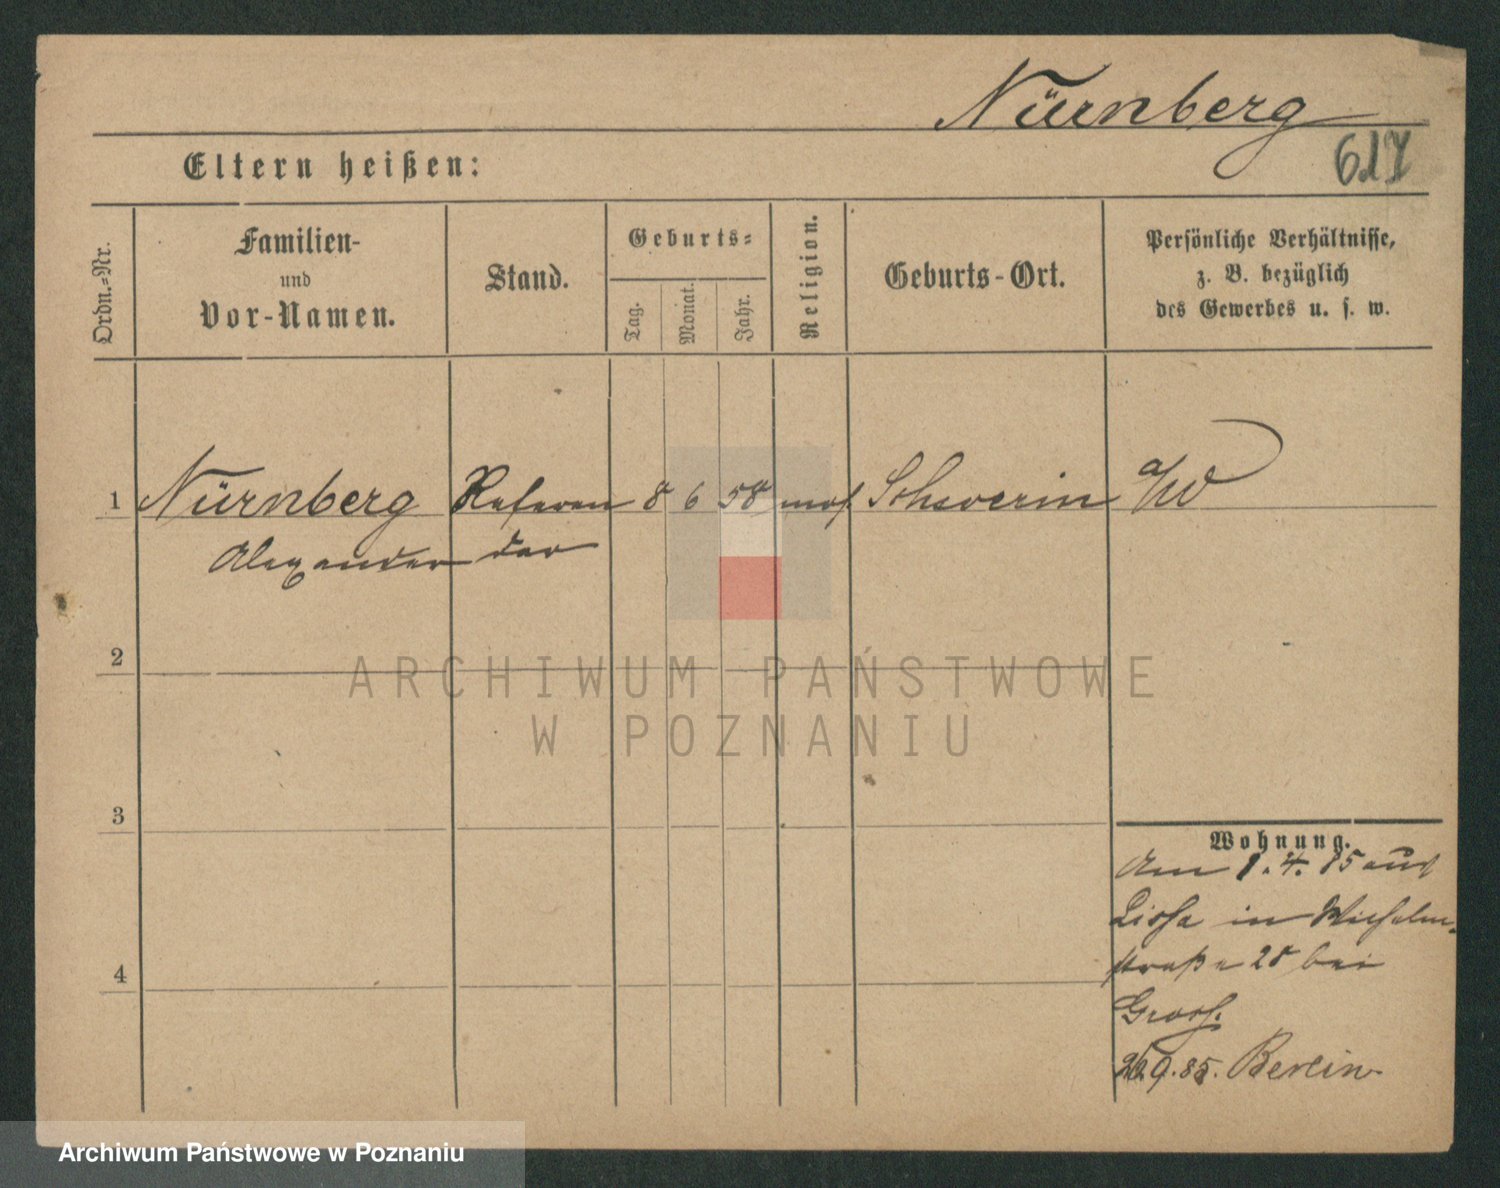 Nürnberg
617
Eltern heißen:
Ordn.=Nr.
Familien-
und
Vor-Namen.
Stand.
Geburts=
Tag.
Monat.
Jahr.
Religion.
Geburts-Ort.
Persönliche Verhältnisse,
z. B. bezüglich
des Gewerbes u. s. w.
1 Nürnberg Referen 8 6 58 mos. Schwerin a/W
Alexander dar
2
ARCHIWUM PAŃSTWOWE
W POZNANIU
3
4
Wohnung.
Am 1.4.85 aus
Lissa in Wilhelm-
straße 28 bei
26.9.85. Berlin
Archiwum Państwowe w Poznaniu